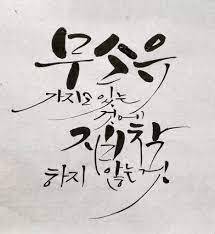 무소유
가지고 있는
것에
집착
하지 않는 것!